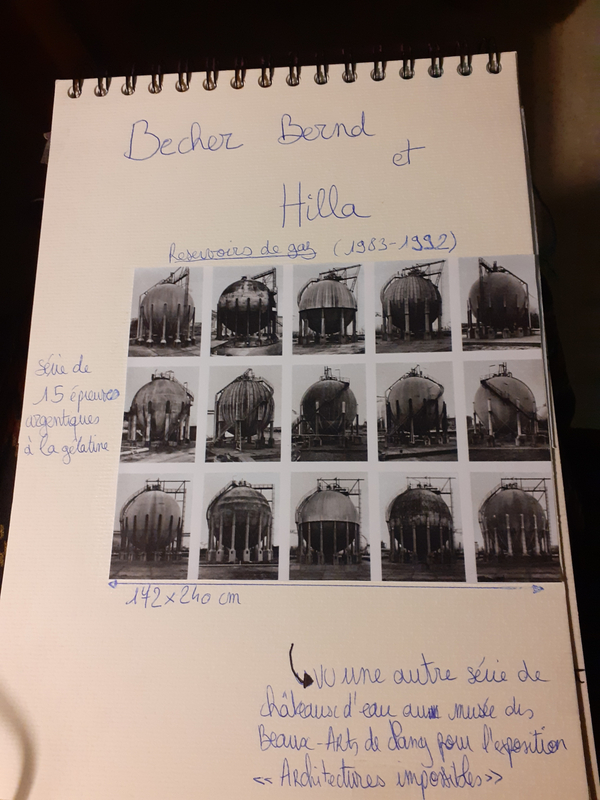 Becher Bernd
et
Hilla
Reservoirs de gaz (1983-1992)
série de
15 épreuves
argentiques
à la gélatine
172 x 240 cm
vu une autre série de
châteaux d'eau au musée des
Beaux-Arts de Nancy pour l'exposition
<< Architectures impossibles >>